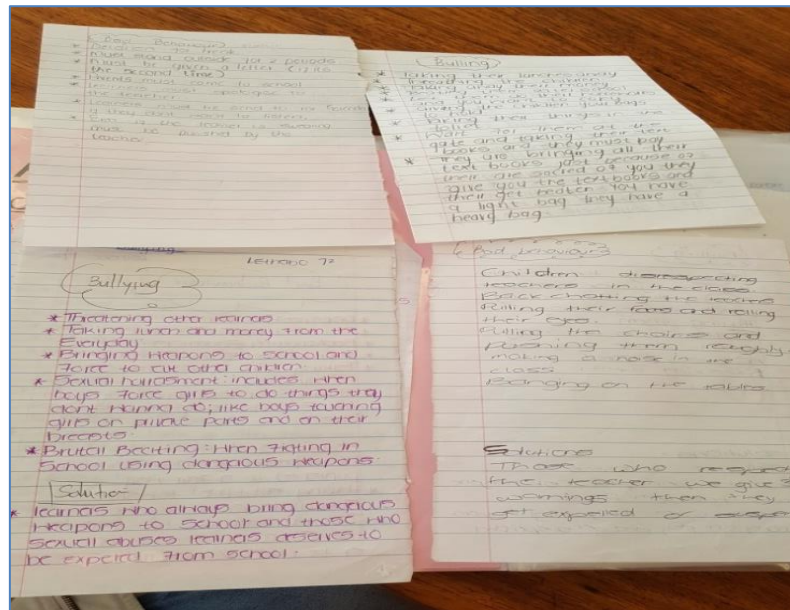 Bad Behaviour
* Detention for
* Must stand outside for 2 periods
* Must be given a letter (if its
the second time)
* Parents must come to school
* Learners must apologise to
the teacher
* Learners must be send to
if they dont want to listen.
* Even if the
must be punished by the
teacher
Bulling
* Taking their lunches away
* Threating the children
* Taking away their money
and you want to copy
* Giving the children your bags
to hold
* Taking their things in the
toilet
* Wait for them at the
gate and taking their text
books and they must pay
* They are bringing all their
text books just because of
their are scared of you they
give you the textbooks and
their get beaten You have
a light bag they have a
heavy bag.
Lerrono 72
Bullying
* Threatening other learners
* Taking lunch and money from the
Everyday
* Bringing weapons to school and
force to cut other children
* Sexual harrasment: includes when
boys force girls to do things they
dont wanna do; like boys touching
girls on private parts and on their
breasts.
* Brutall Beating: when fighting in
School using dangerous weapons.
Solution
* learners who always bring dangerous
weapons to school and those who
sexual abuses learners deserves to
be expelled from school.
Bad behaviour
Children disrespecting
teachers in the class.
Back chatting the teachers
Pulling their faces and rolling
their eyes.
Pulling the chairs and
pushing them roughly.
making a noise in the
class
Banging on the tables
Solutions
Those who
the teacher we give 3
warnings then they
get expelled or